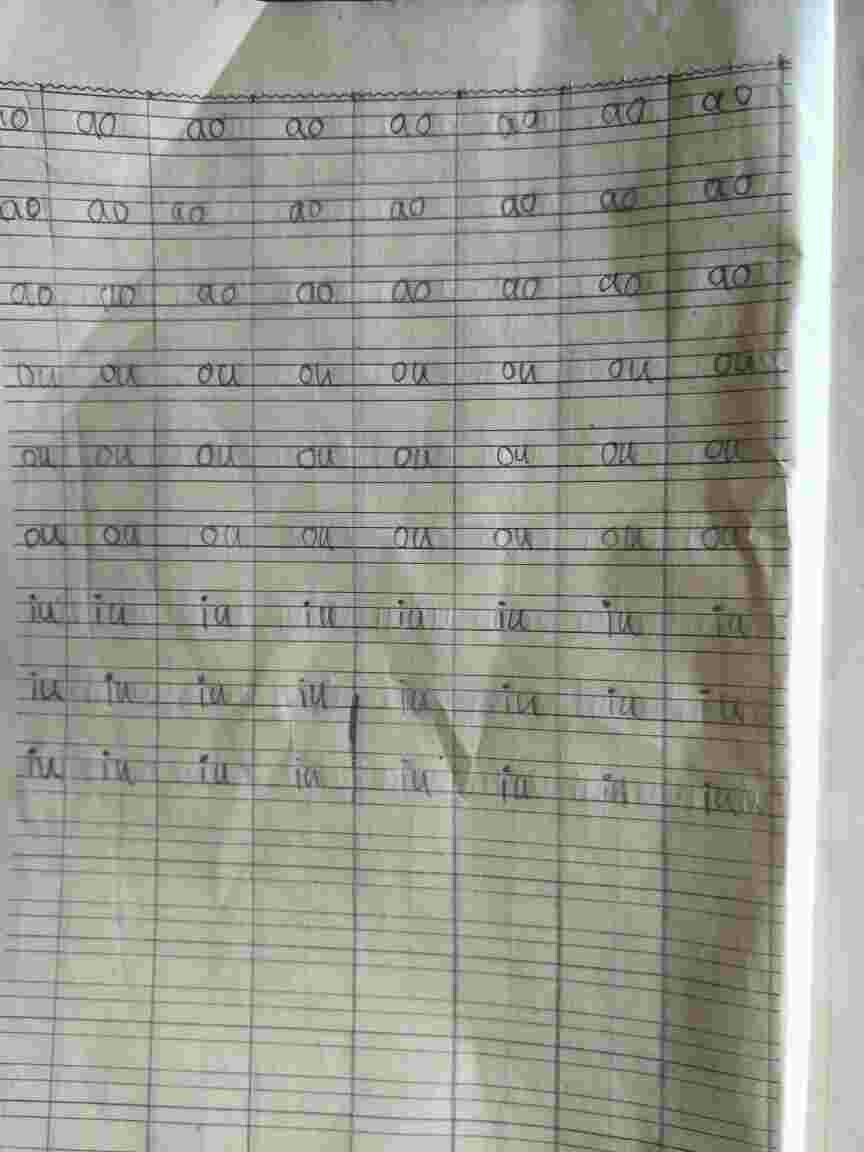 ao ao ao ao ao ao ao ao
ao ao ao ao ao ao ao ao
ao ao ao ao ao ao ao ao
ou ou ou ou ou ou ou ou
ou ou ou ou ou ou ou ou
ou ou ou ou ou ou ou ou
iu iu iu iu iu iu iu iu
iu iu iu iu iu iu iu iu
iu iu iu iu iu iu iu iu